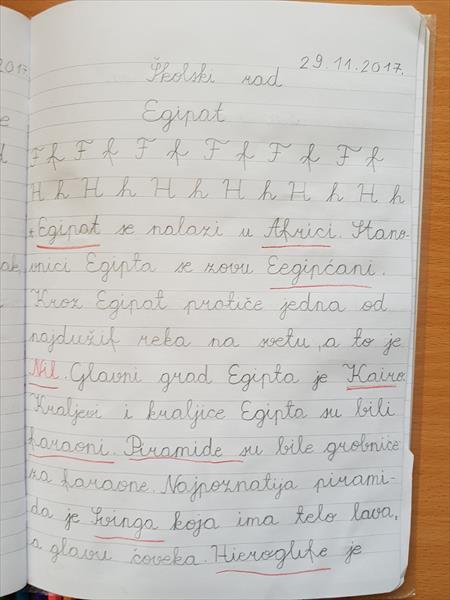 29.11.2017.
Školski rad
Egipat
F f F f F f F f F f F f
H h H h H h H h H h H h
Egipat se nalazi u Africi. Stano-
vnici Egipta se zovu Eegipćani.
Kroz Egipat protiče jedna od
najdužif reka na svetu, a to je
Nil. Glavni grad Egipta je Kairo.
Kraljevi i kraljice Egipta su bili
faraoni. Piramide su bile grobnice
za faraone. Najpoznatija pirami-
da je Svinga koja ima telo lava,
a glavu čoveka. Hieroglife je